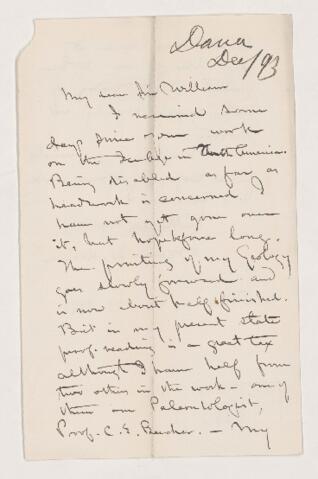 Dana
Dec/93
My dear Sir William
I received some
days since your work
on the in America.
Being disabled as far as
headwork is concerned I
have not yet gone over
it, but hope before long.
The printing of my Geology
goes slowly forward and
is now about half finished.
But in my present state
proof-reading is a great tax
although I have help from
two others in the work - one of
them our Paleontologist,
Prof. C. E. Beecher. - My